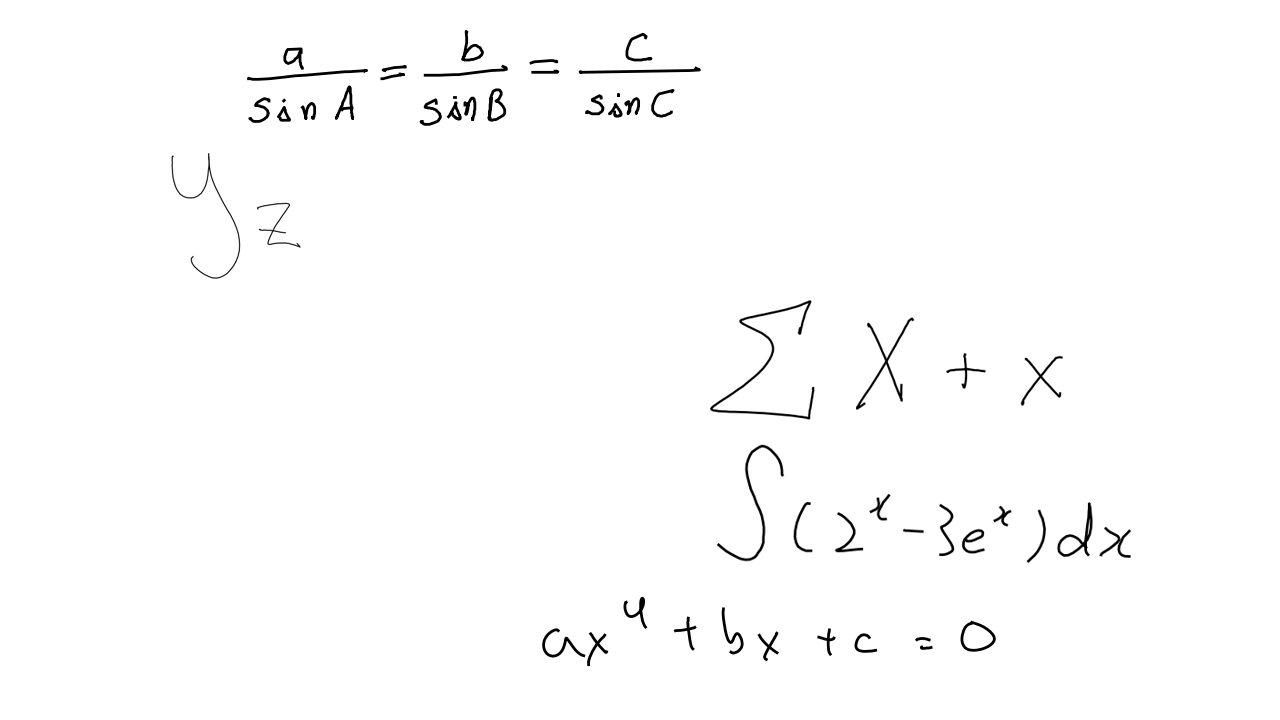 a/sin A = b/sin B = c/sin C
yz
∑ X + x
∫(2^x - 3e^x)dx
ax^4 + bx + c = 0